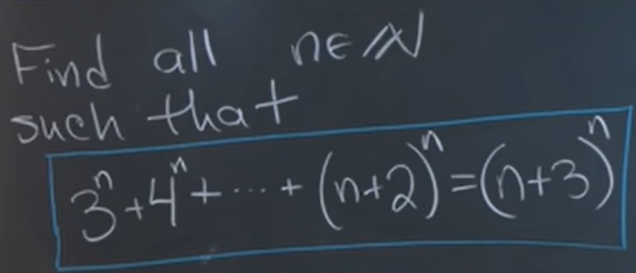 Find all n∈ℕ
such that
3ⁿ+4ⁿ+···+(n+2)ⁿ=(n+3)ⁿ